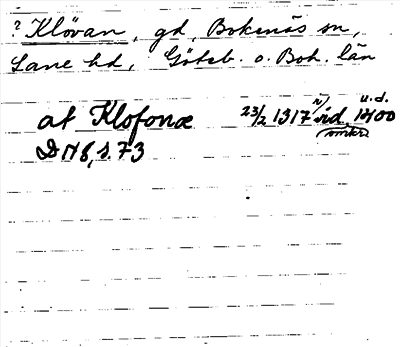 ? Klövan, gd, Bokenäs sn,
Lane hd, Göteb. o. Boh. län
at Klofonæ 23/2 1317 i vid. u.d. 1400
DN 8, s. 73